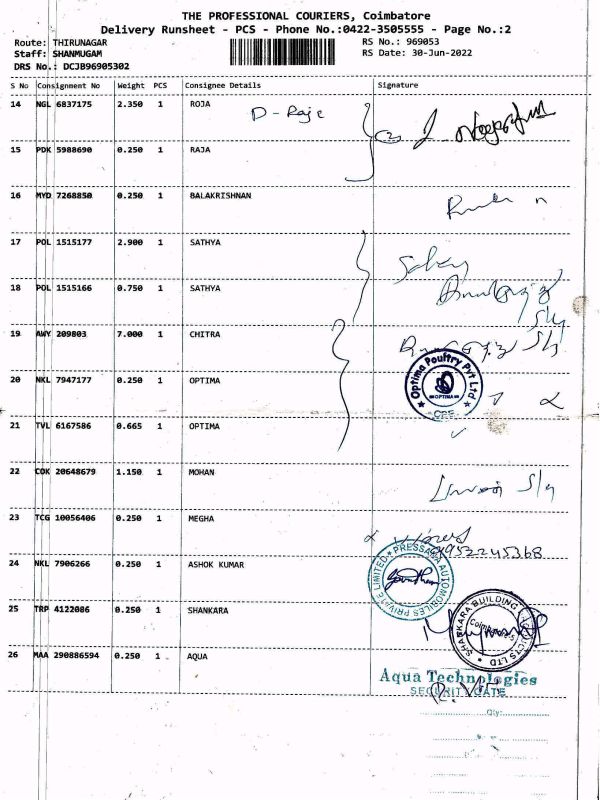 THE PROFESSIONAL COURIERS, Coimbatore
Delivery Runsheet - PCS - Phone No.:0422-3505555 - Page No.:2
Route: THIRUNAGAR RS No.: 969053
Staff: SHANMUGAM RS Date: 30-Jun-2022
DRS No.: DCJB96905302
S No Consignment No Weight PCS Consignee Details Signature
14 NGL 6837175 2.350 1 ROJA D-Raje
15 PDK 5988690 0.250 1 RAJA
16 MYD 7268850 0.250 1 BALAKRISHNAN
17 POL 1515177 2.900 1 SATHYA
18 POL 1515166 0.750 1 SATHYA
19 AWY 209803 7.000 1 CHITRA
20 NKL 7947177 0.250 1 OPTIMA Optima Poultry Pvt Ltd OPTIMA CBE
21 TVL 6167586 0.665 1 OPTIMA
22 COK 20648679 1.150 1 MOHAN
23 TCG 10056406 0.250 1 MEGHA 9952245368
24 NKL 7906266 0.250 1 ASHOK KUMAR PRESSANA AUTOMOBILES PRIVATE LIMITED
25 TRP 4122086 0.250 1 SHANKARA SHANKARA BUILDING PRODUCTS LTD Coimbatore
26 MAA 290886594 0.250 1 AQUA Aqua Technologies
SECURITY GATE
Qty: